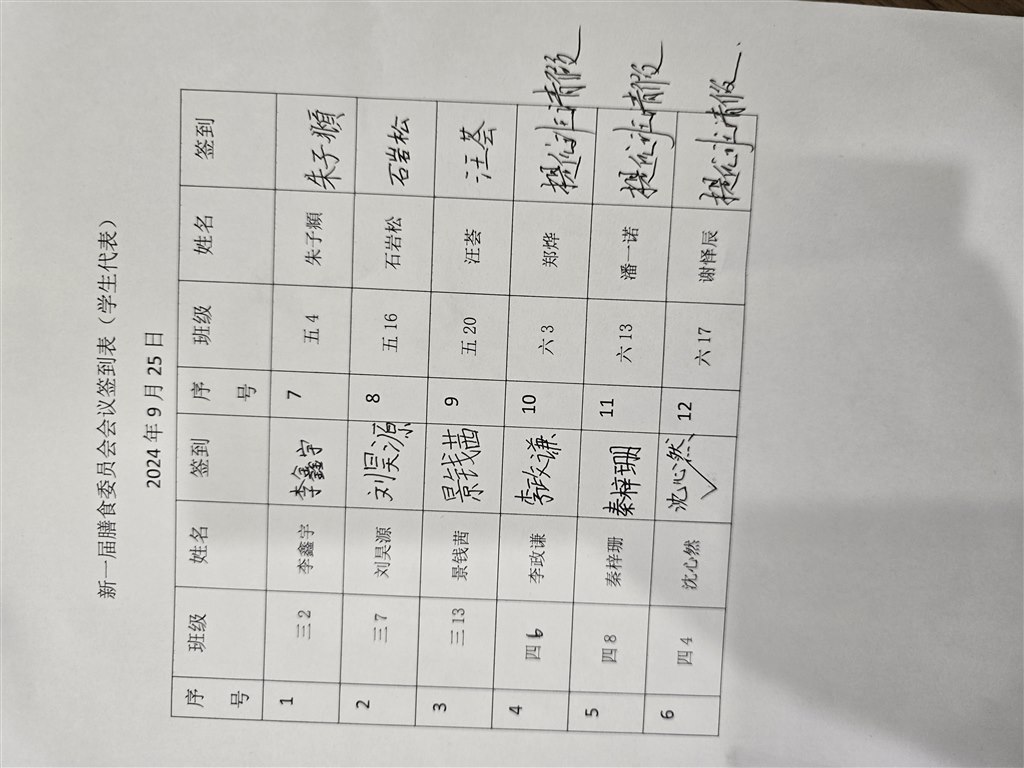 新一届膳食委员会会议签到表（学生代表）
2024 年 9 月 25 日
序号 班级 姓名 签到 序号 班级 姓名 签到
1 三 2 李鑫宇 李鑫宇 7 五 4 朱子頫 朱子頫
2 三 7 刘昊源 刘昊源 8 五 16 石岩松 石岩松
3 三 13 景钱茜 景钱茜 9 五 20 汪荟 汪荟
4 四 6 李政谦 李政谦 10 六 3 郑烨 请假
5 四 8 秦梓珊 秦梓珊 11 六 13 潘一诺 请假
6 四 4 沈心然 沈心然 12 六 17 谢怿辰 请假